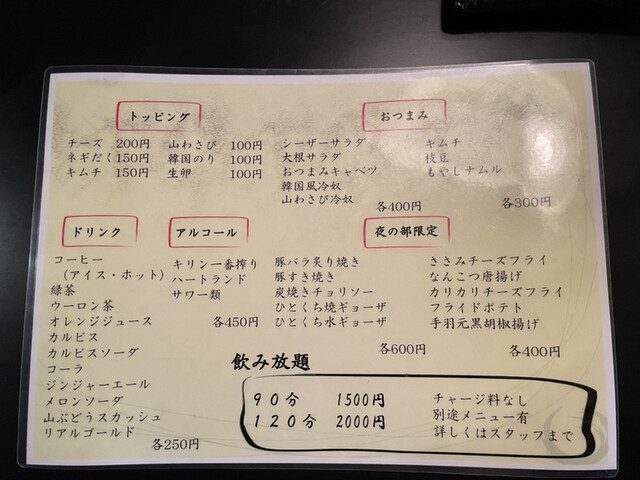 トッピング
チーズ 200円
ネギだく 150円
キムチ 150円
山わさび 100円
韓国のり 100円
生卵 100円
おつまみ
シーザーサラダ
大根サラダ
おつまみキャベツ
韓国風冷奴
山わさび冷奴
各400円
キムチ
枝豆
もやしナムル
各300円
ドリンク
コーヒー
(アイス・ホット)
緑茶
ウーロン茶
オレンジジュース
カルピス
カルピスソーダ
コーラ
ジンジャーエール
メロンソーダ
山ぶどうスカッシュ
リアルゴールド
各250円
アルコール
キリン一番搾り
ハートランド
サワー類
各450円
夜の部限定
豚バラ炙り焼き
豚すき焼き
炭焼きチョリソー
ひとくち焼ギョーザ
ひとくち水ギョーザ
各600円
ささみチーズフライ
なんこつ唐揚げ
カリカリチーズフライ
フライドポテト
手羽元黒胡椒揚げ
各400円
飲み放題
90分 1500円
120分 2000円
チャージ料なし
別途メニュー有
詳しくはスタッフまで